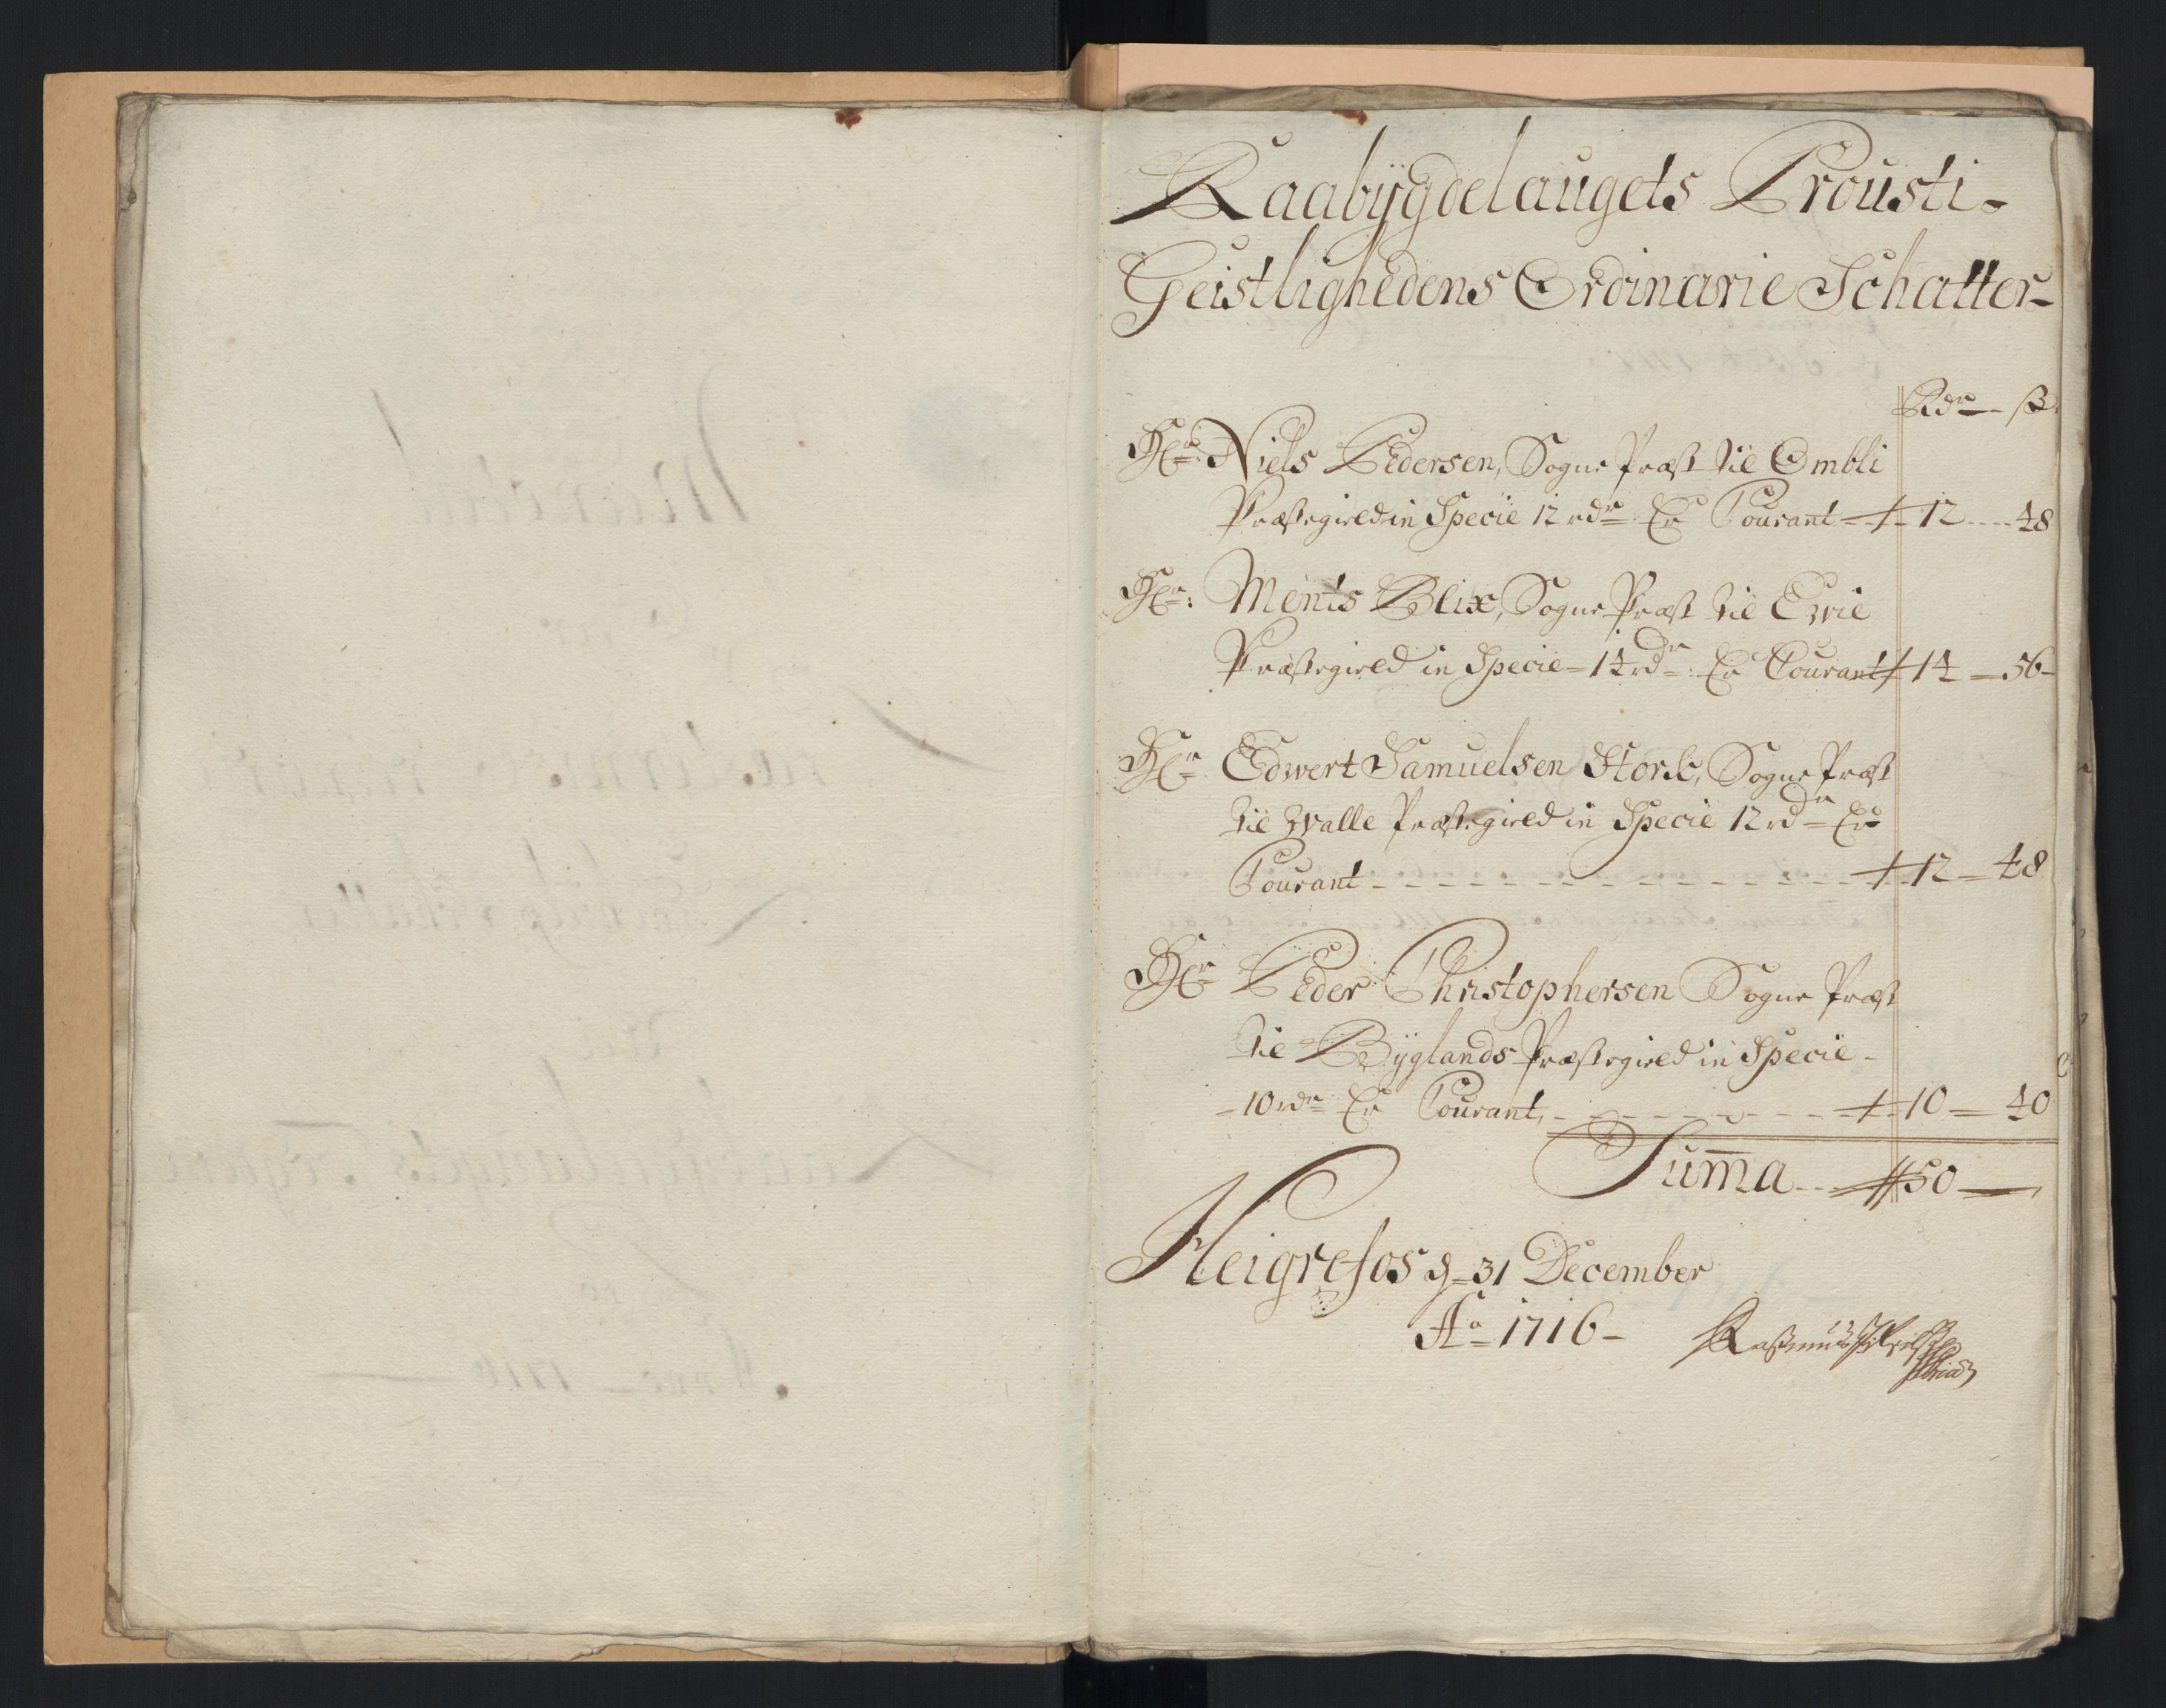 Raabÿgdelaugets Prousti-
Geistlighedens Ordinarie Schatter-
Rdr – ß
Hr: Niels Pedersen, Sogne Præst til Ombli
Præstegield in Specie 12 rdr Er Courant 12 48
Hr: Ments Blix, Sogne Præst til Ewie
Præstegield in Specie 14 rdr Er Courant 14 – 56
Hr Edwert Samuelsen Stork, Sogne Præst
til Walle Præstegield in Specie 12 rdr Er
Courant 12 – 48
Hr Peder Christophersen Sogne Præst
til Bÿglands Præstegield in Specie
10 rdr Er Courant, 10 – 40
Sum̄a 50 –
Heigrefos d 31 December
Ao 1716 – Rasmus